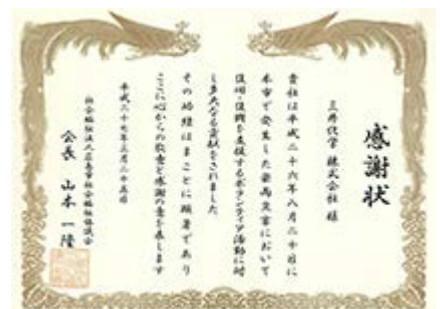 感謝状
三井化学 株式会社 様
貴社は平成二十六年八月二十日に
本市で発生した豪雨災害において
復旧・復興を支援するボランティア活動に対
し多大なる貢献をされました
その功績はまことに顕著であり
ここに心からの敬意と感謝の意を表します
平成二十七年三月二十五日
社会福祉法人広島市社会福祉協議会
会長 山本 一隆